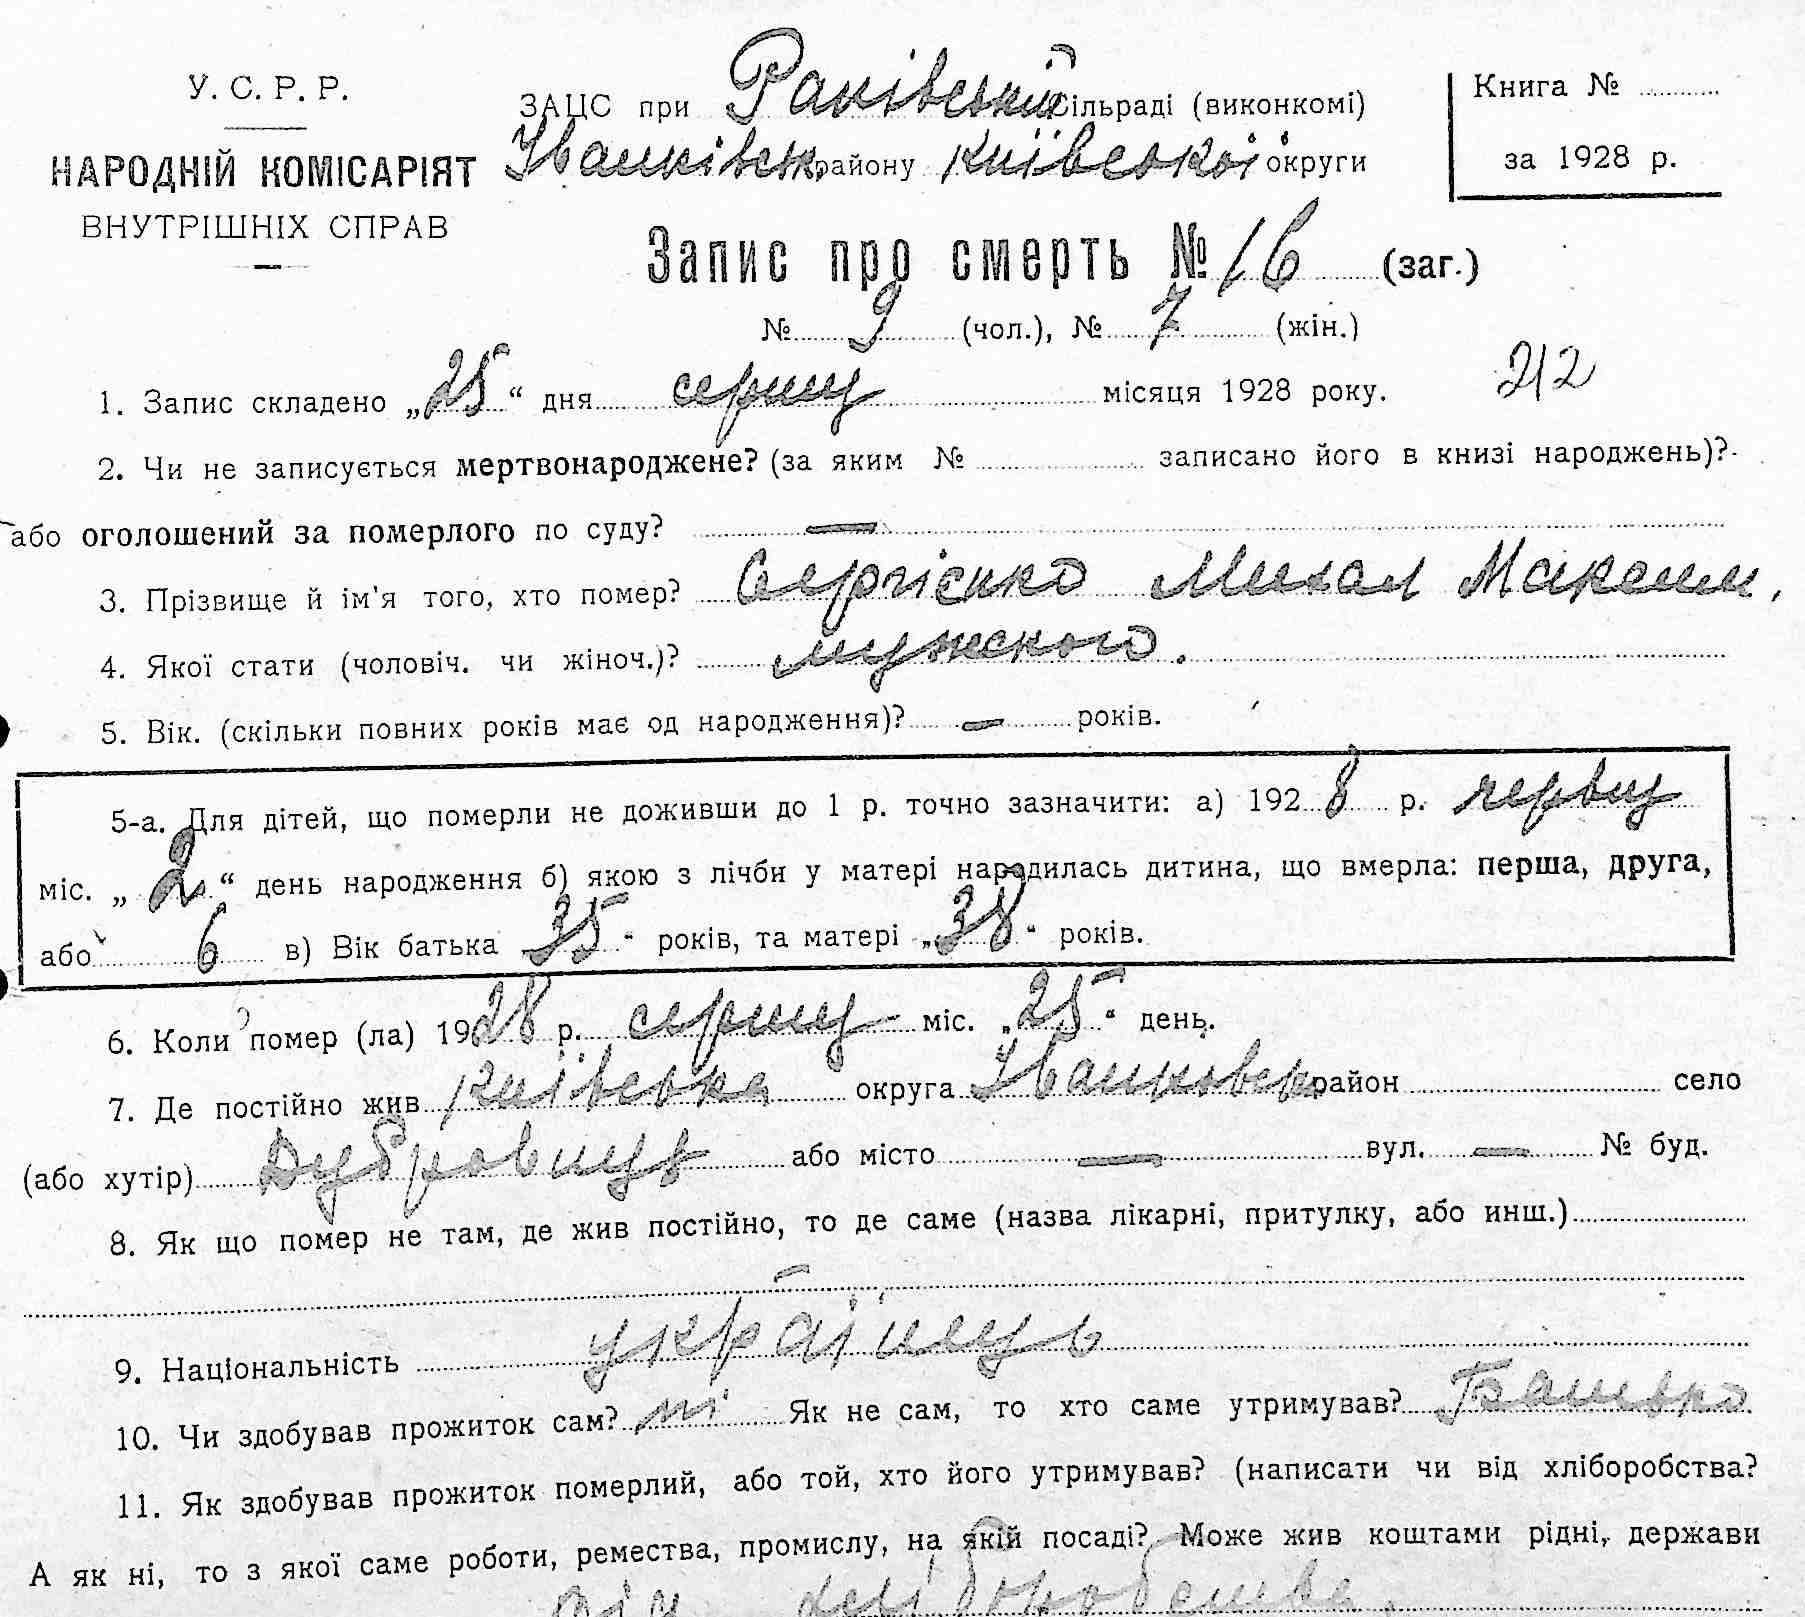 У. С. Р. Р.
НАРОДНІЙ КОМІСАРІЯТ
ВНУТРІШНІХ СПРАВ
ЗАЦС при Раківській сільраді (виконкомі)
Іванківськ. району Київської округи
Книга №
за 1928 р.
Запис про смерть № 16 (заг.)
№ 9 (чол.), № 7 (жін.)
1. Запис складено „25“ дня серпн місяця 1928 року. 212
2. Чи не записується мертвонароджене? (за яким № записано його в книзі народжень)?
або оголошений за померлого по суду? —
3. Прізвище й ім'я того, хто помер? Сергієнко Михал Максим.
4. Якої стати (чоловіч. чи жіноч.)? мужского.
5. Вік. (скільки повних років має од народження)? — років.
5-а. Для дітей, що померли не доживши до 1 р. точно зазначити: а) 1928 р. червц
міс. „2“ день народження б) якою з лічби у матері народилась дитина, що вмерла: перша, друга,
або 6 в) Вік батька 35 “ років, та матері „38“ років.
6. Коли помер (ла) 1928 р. серпн міс. „25“ день.
7. Де постійно жив Київська округа Іванковськ район село
(або хутір) Дубровиця або місто — вул. — № буд.
8. Як що помер не там, де жив постійно, то де саме (назва лікарні, притулку, або инш.)
—
9. Національність українець
10. Чи здобував прожиток сам? ні Як не сам, то хто саме утримував? Батько
11. Як здобував прожиток померлий, або той, хто його утримував? (написати чи від хліборобства?
А як ні, то з якої саме роботи, ремества, промислу, на якій посаді? Може жив коштами рідні, держави
від хліборобства.